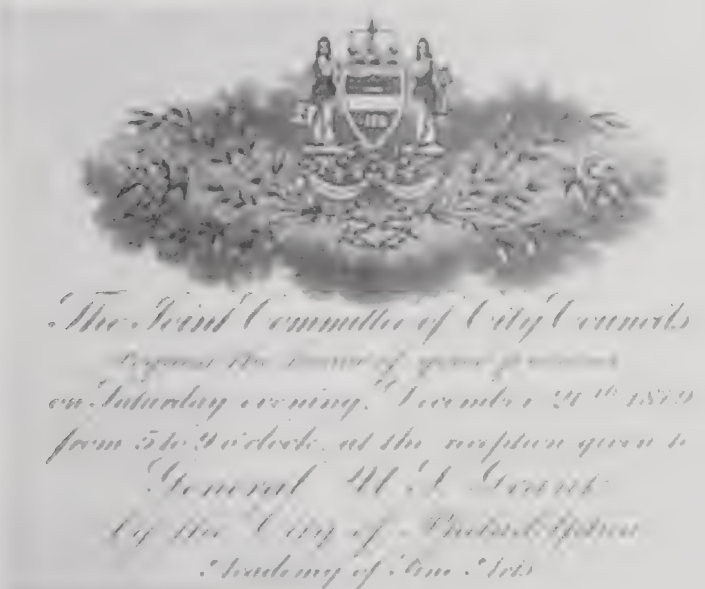 The Joint Committee of City Councils
request the honor of your presence
on Saturday evening, December 20th 1879
from 5 to 9 o'clock, at the reception given to
General U. S. Grant
by the City of Philadelphia
Academy of Fine Arts